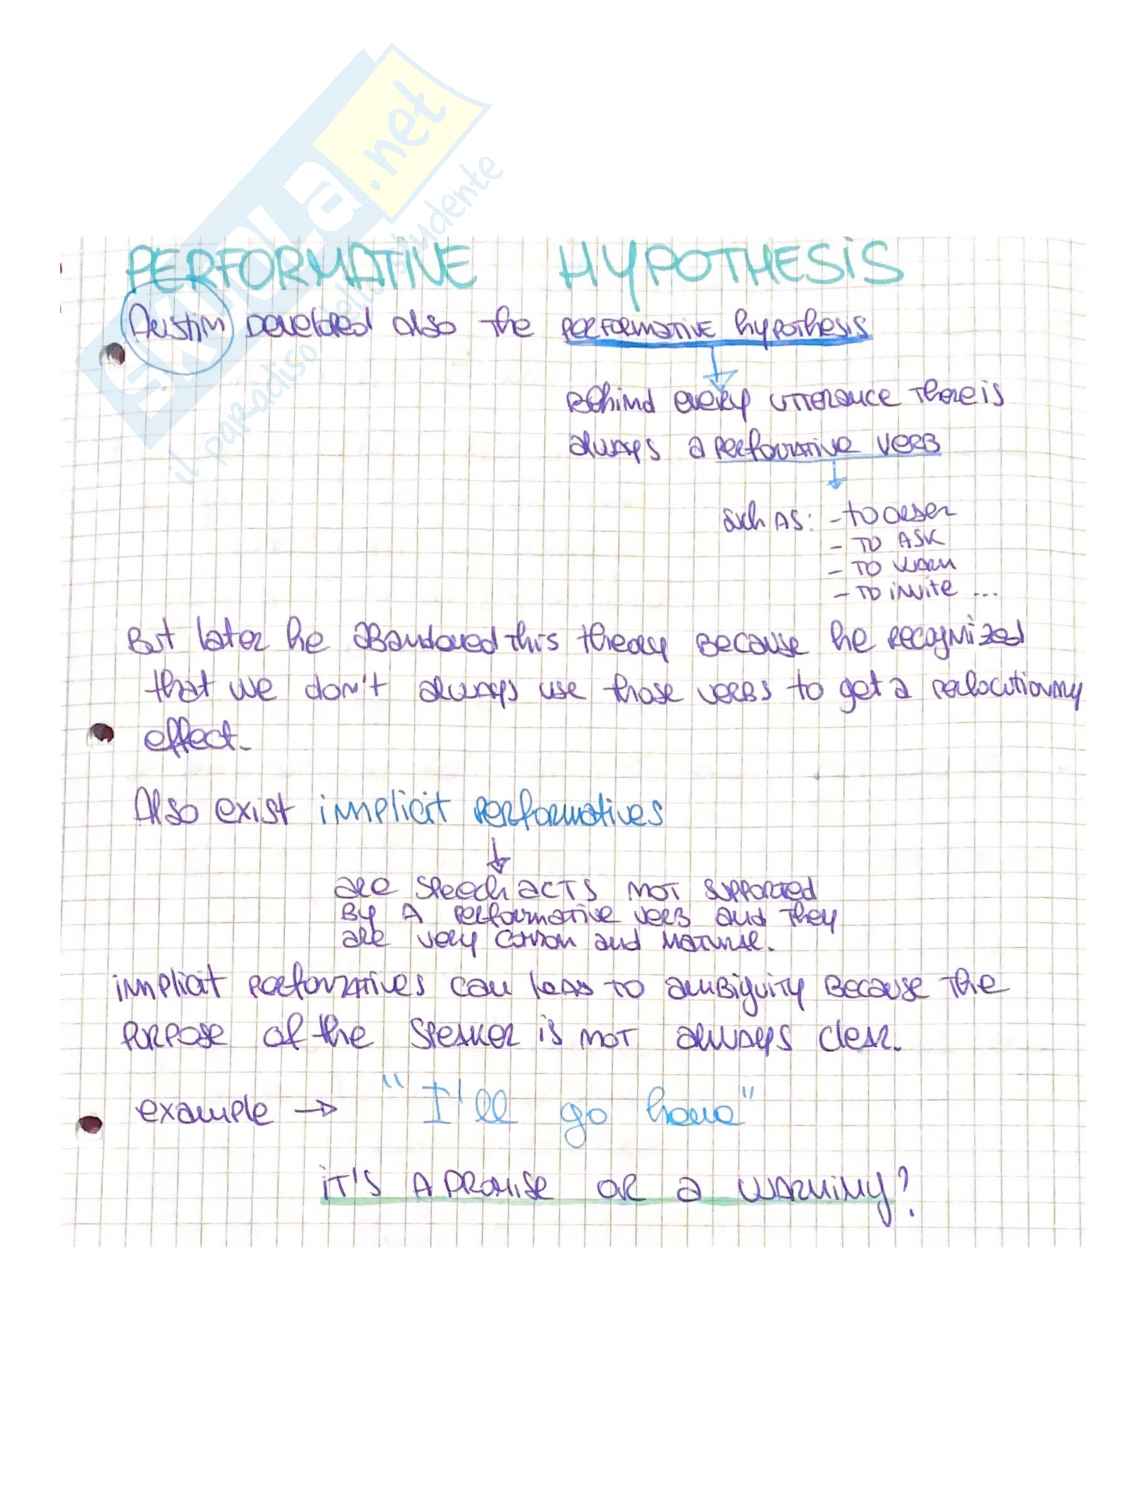 SKUOLA.net
il paradiso dello studente
PERFORMATIVE HYPOTHESIS
Austin developed also the performative hypothesis
Behind every utterance there is
always a performative verb
such as: - to order
- to ask
- to warn
- to invite ...
But later he abandoned this theory because he recognized
that we don't always use those verbs to get a perlocutionary
effect.
Also exist implicit performatives
are speech acts not supported
by a performative verb and they
are very common and natural.
implicit performatives can lead to ambiguity because the
purpose of the speaker is not always clear.
example → "I'll go home"
it's a promise or a warning?